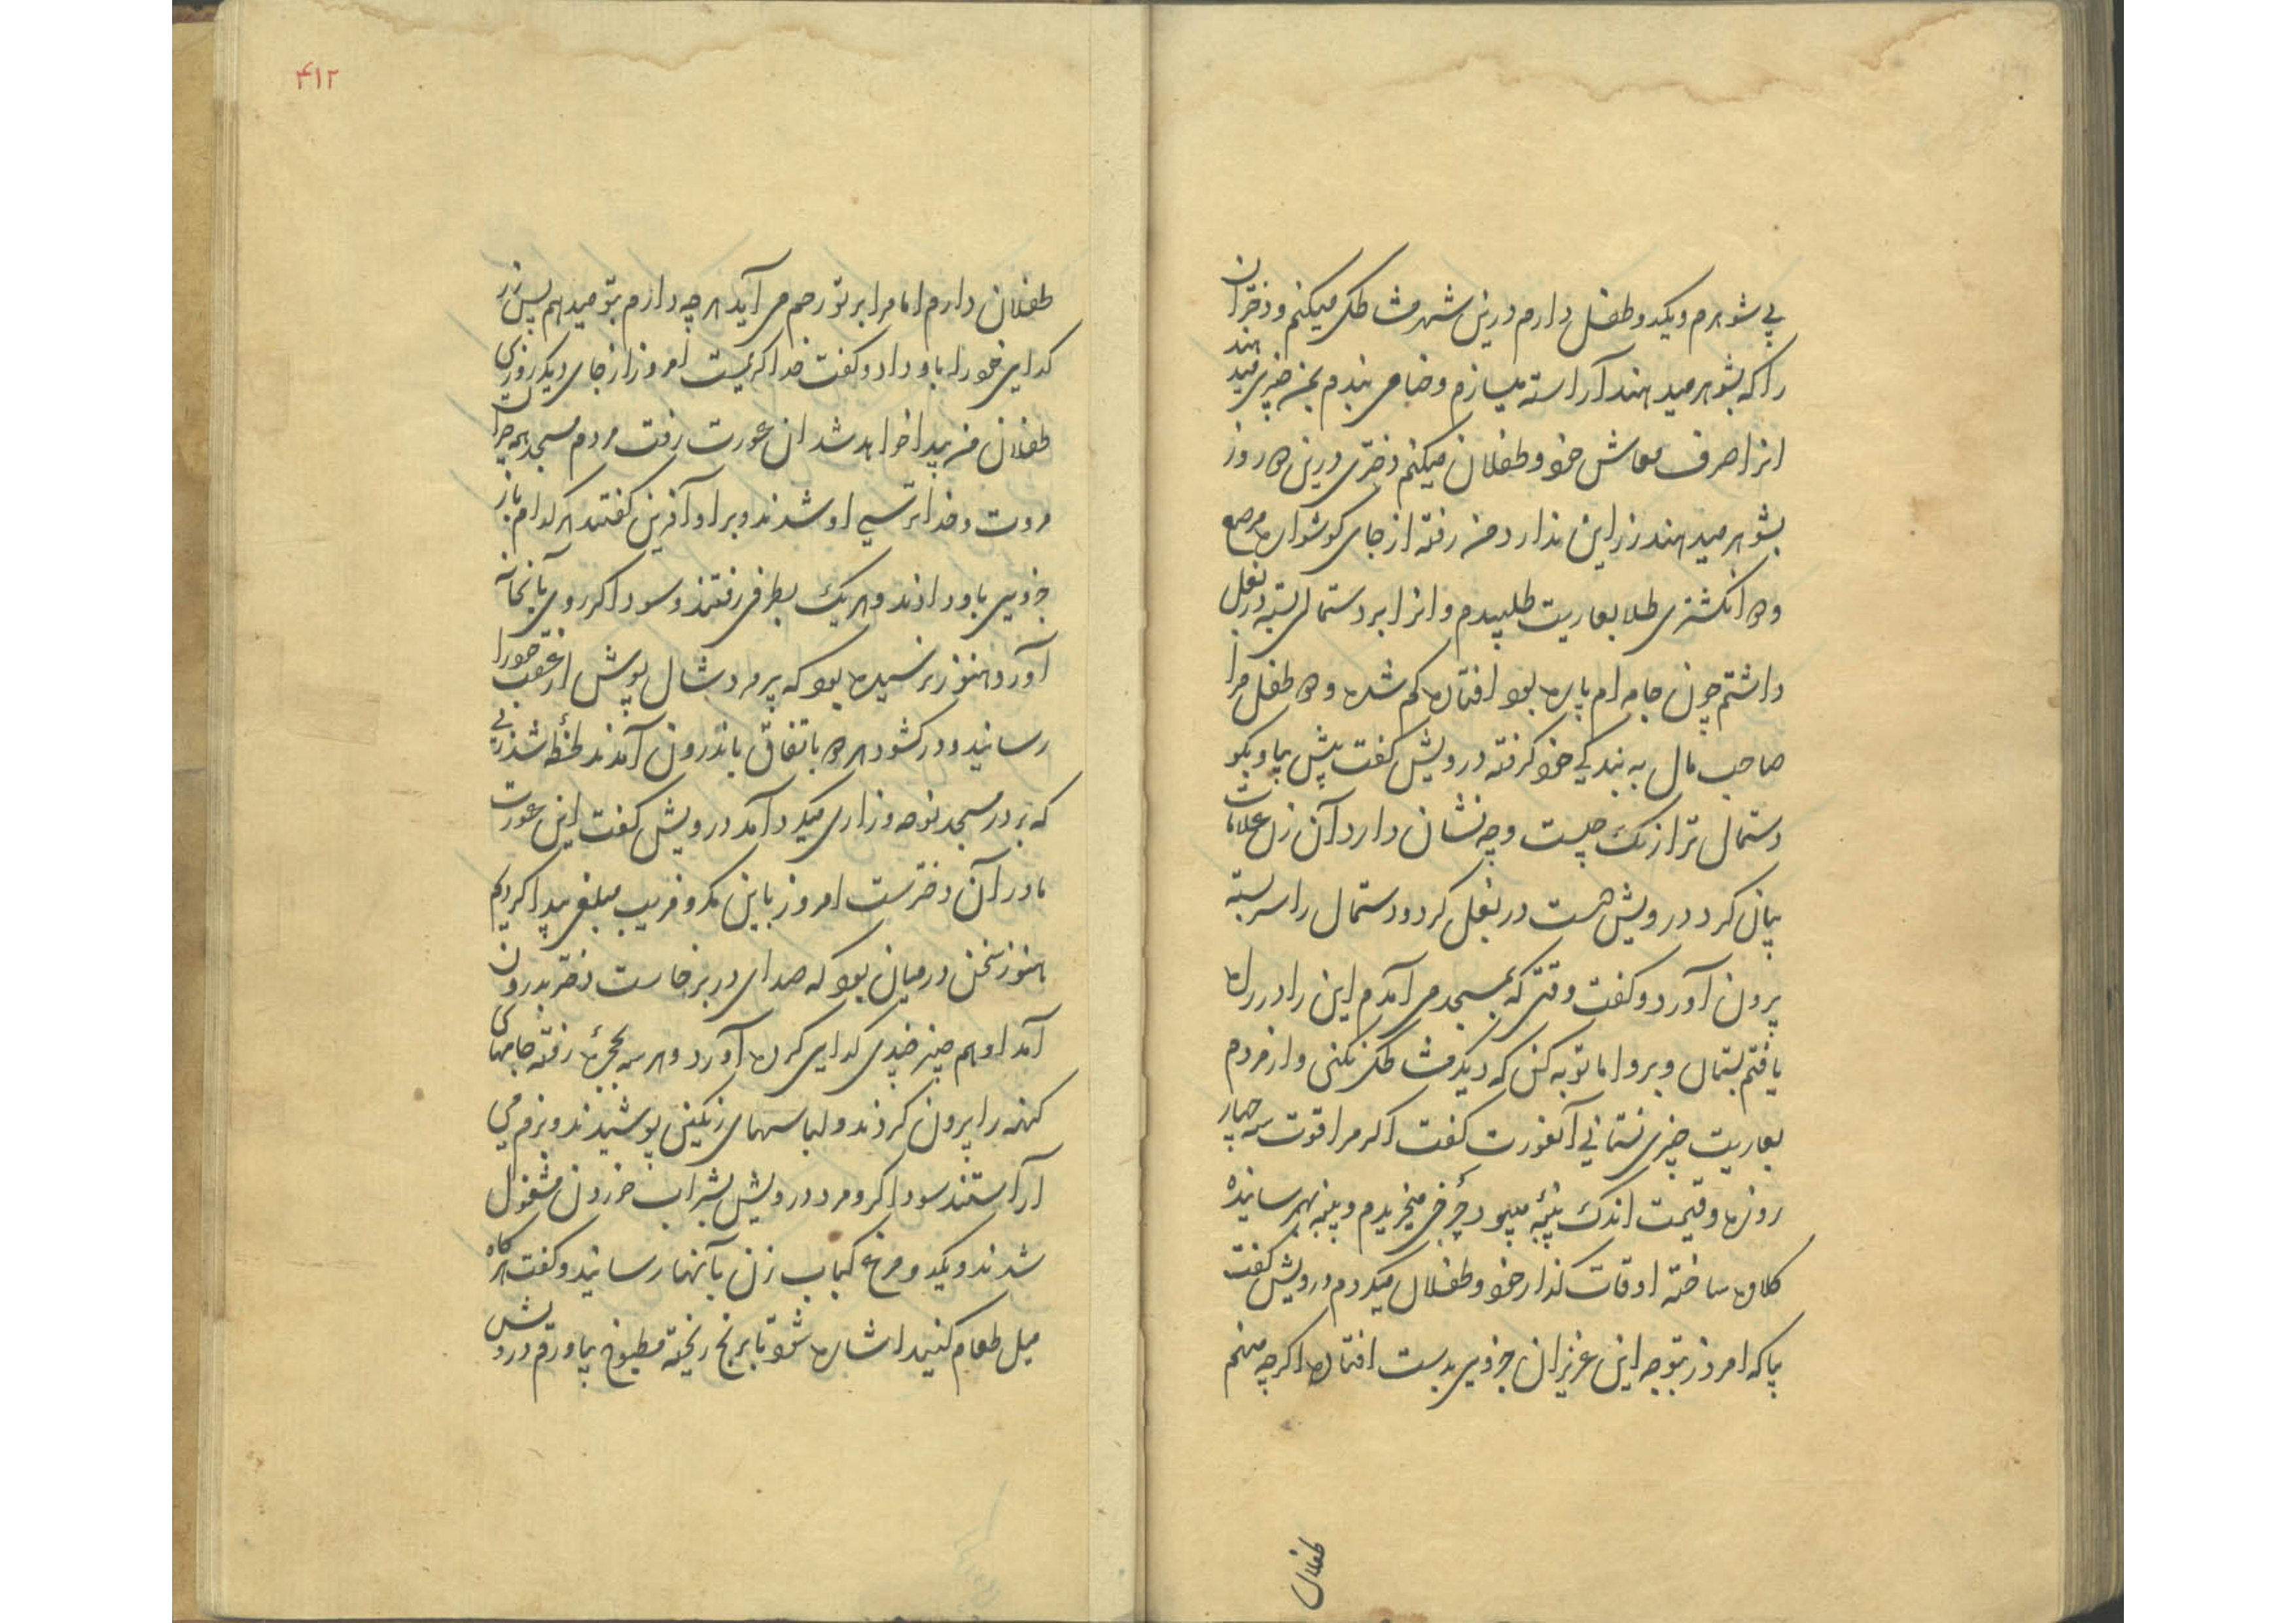 بی شوهرم ویکدو طفل دارم درین شهر مشاطکی میکنم و دختران
را که بشوهر میدهند آراسته میسازم و حنا می بندم بمن چیزی میدهند
انرا صرف معاش خود و طفلان میکنم دختری درین دو روز
بشوهر میدهند زر این ندارد من رفته از جای کوشواره مرصع
و دو انکشتری طلا بعاریت طلبیدم و انرا بر دستمالی بسته در بغل
داشتم چون جامه ام پاره بود افتاده کم شده و دو طفل مرا
صاحب مال به بندکی خود کرفته درویش کفت پیش بیا و بکو
دستمال ترا رنک چیست و چه نشان دارد آن زن علامات
بیان کرد درویش دست در بغل کرد و دستمال را سربسته
بیرون آورد و کفت وقتی که بمسجد می آمدم این را در راه
یافتم بستان و برو اما توبه کن که دیکر مشاطکی نکنی و از مردم
بعاریت چیزی نستانی آنعورت کفت اکر مرا قوت سه چهار
روزه و قیمت اندک پنبه میبود چرخی میخریدم و پنبه بهم رسانیده
کلاوه ساخته اوقات کذار خود و طفلان میکردم درویش کفت
بیا که امروز بتوجه این عزیزان جزوی بدست افتاده اکرچه منهم
طفلان
۴۱۲
طفلان دارم اما مرا بر تو رحم می آید هرچه دارم بتو میدهم پس زر
کدایی خود را باو داد و کفت خدا کریمست امروز از جای دیکر روزی
طفلان من پیدا خواهد شد ان عورت رفت مردم مسجد همه حیران
مروت و خدا ترسی او شدند و بر او آفرین کفتند هر کدام باز
جزویی باو دادند و هر یک بطرفی رفتند و سوداکر روی بآنخانه
آورد هنوز نرسیده بود که پیرمرد شال پوش از عقب خود را
رسانید و در کشود هر دو باتفاق باندرون آمدند لحظهٔ شد زنی
که بر در مسجد نوحه و زاری میکرد آمد درویش کفت این عورت
مادر آن دخترست امروز باین مکر و فریب مبلغی پیدا کردیم
هنوز سخن در میان بود که صدای در برخاست دختر بدرون
آمد او هم چیز چیدی کدایی کرده آورد و هر سه بحجرهٔ رفته جامهای
کهنه را بیرون کردند و لباسهای رنکین پوشیدند و بزم می
آراستند سوداکر و مرد درویش بشراب خوردن مشغول
شدند و یکدو مرغ کباب زن بآنها رسانید و کفت هرکاه
میل طعام کنید اشاره شود تا برنج ریخته مطبوخ بیاورم درویش